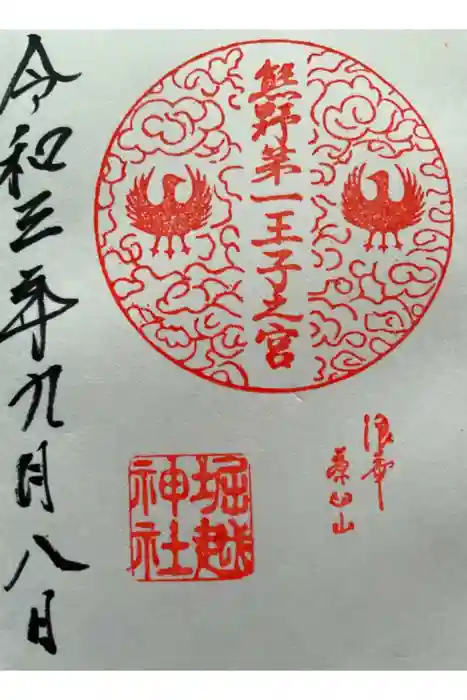 熊野第一王子之宮
浪華
茶臼山
堀越
神社
令和三年九月八日